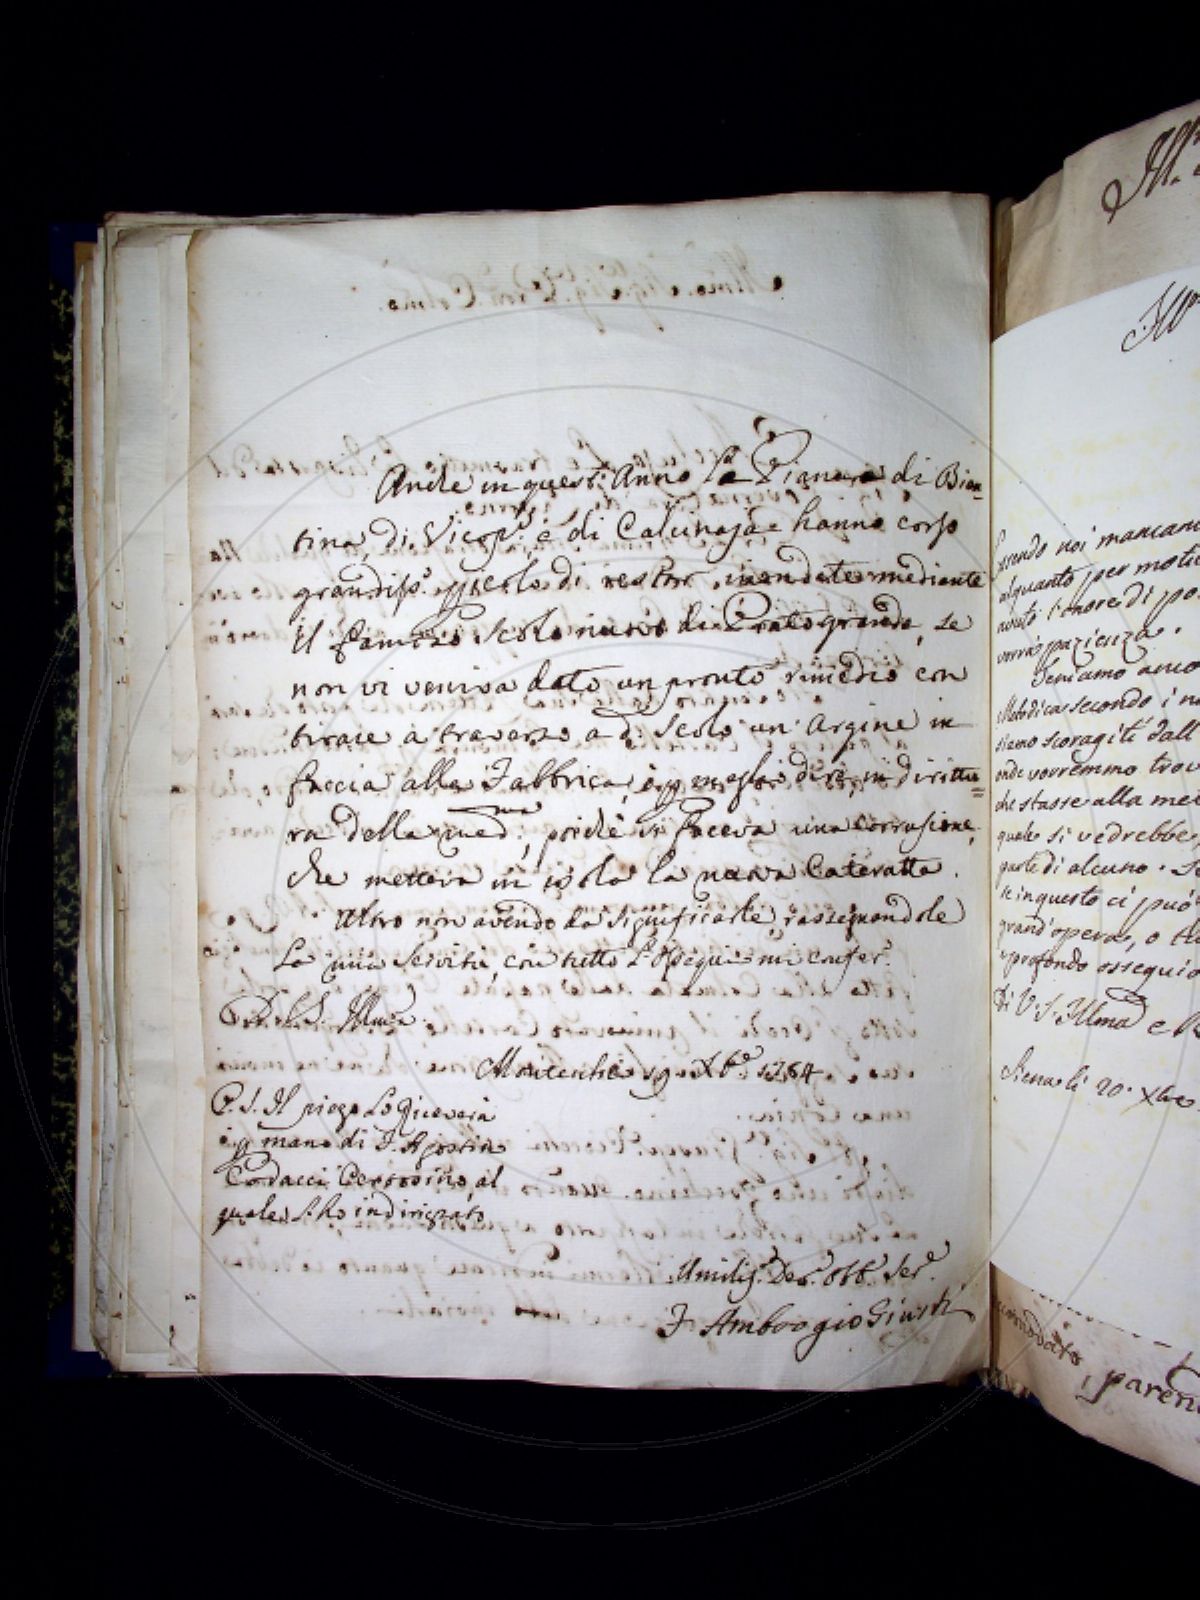 Anche in quest: Anno La Pianura di Bien-
tina, di Vicop: e di Calcinaja hanno corso
grandiss: pericolo di restare inondate mediante
il famoso Scolo nuovo di Pratogrande, se
non vi veniva dato un pronto rimedio con
tirare à traverso a d: Scolo un' Argine in
faccia alla Fabbrica, ò p meglio dire, in dirittu=
ra della med:ma, poichè vi faceva una corrosione,
che metteva in isola la nuova Cateratta.
Altro non avendo da significarle, rassegnandole
La mia Servitù, con tutto L'Ossequio mi confer:
Di V. S. Illma
Montecchio 19 Xbre 1764
P. S. Il piego Lo riceverà
p mano di F. Agostin
Codacci Cercovino, al
quale L'ho indirizzato
Umiliss: Dev: Obb: Ser:e
F Ambrogio Giusti
Ill
Ill
Essendo noi mancan
alquanto per motiv
avuto l'onore di po
verrà pazienza.
Veniamo anco
Metodica secondo i n
siamo scoragiti dall
onde vorremmo trov
che stasse alla me
quale si vedrebbe
parte di alcuno. Se
se in questo ci può
grand'opera, o
profondo ossequio
Di V. S. Illma e R
Siena li 20. Xbre
comodato
paren